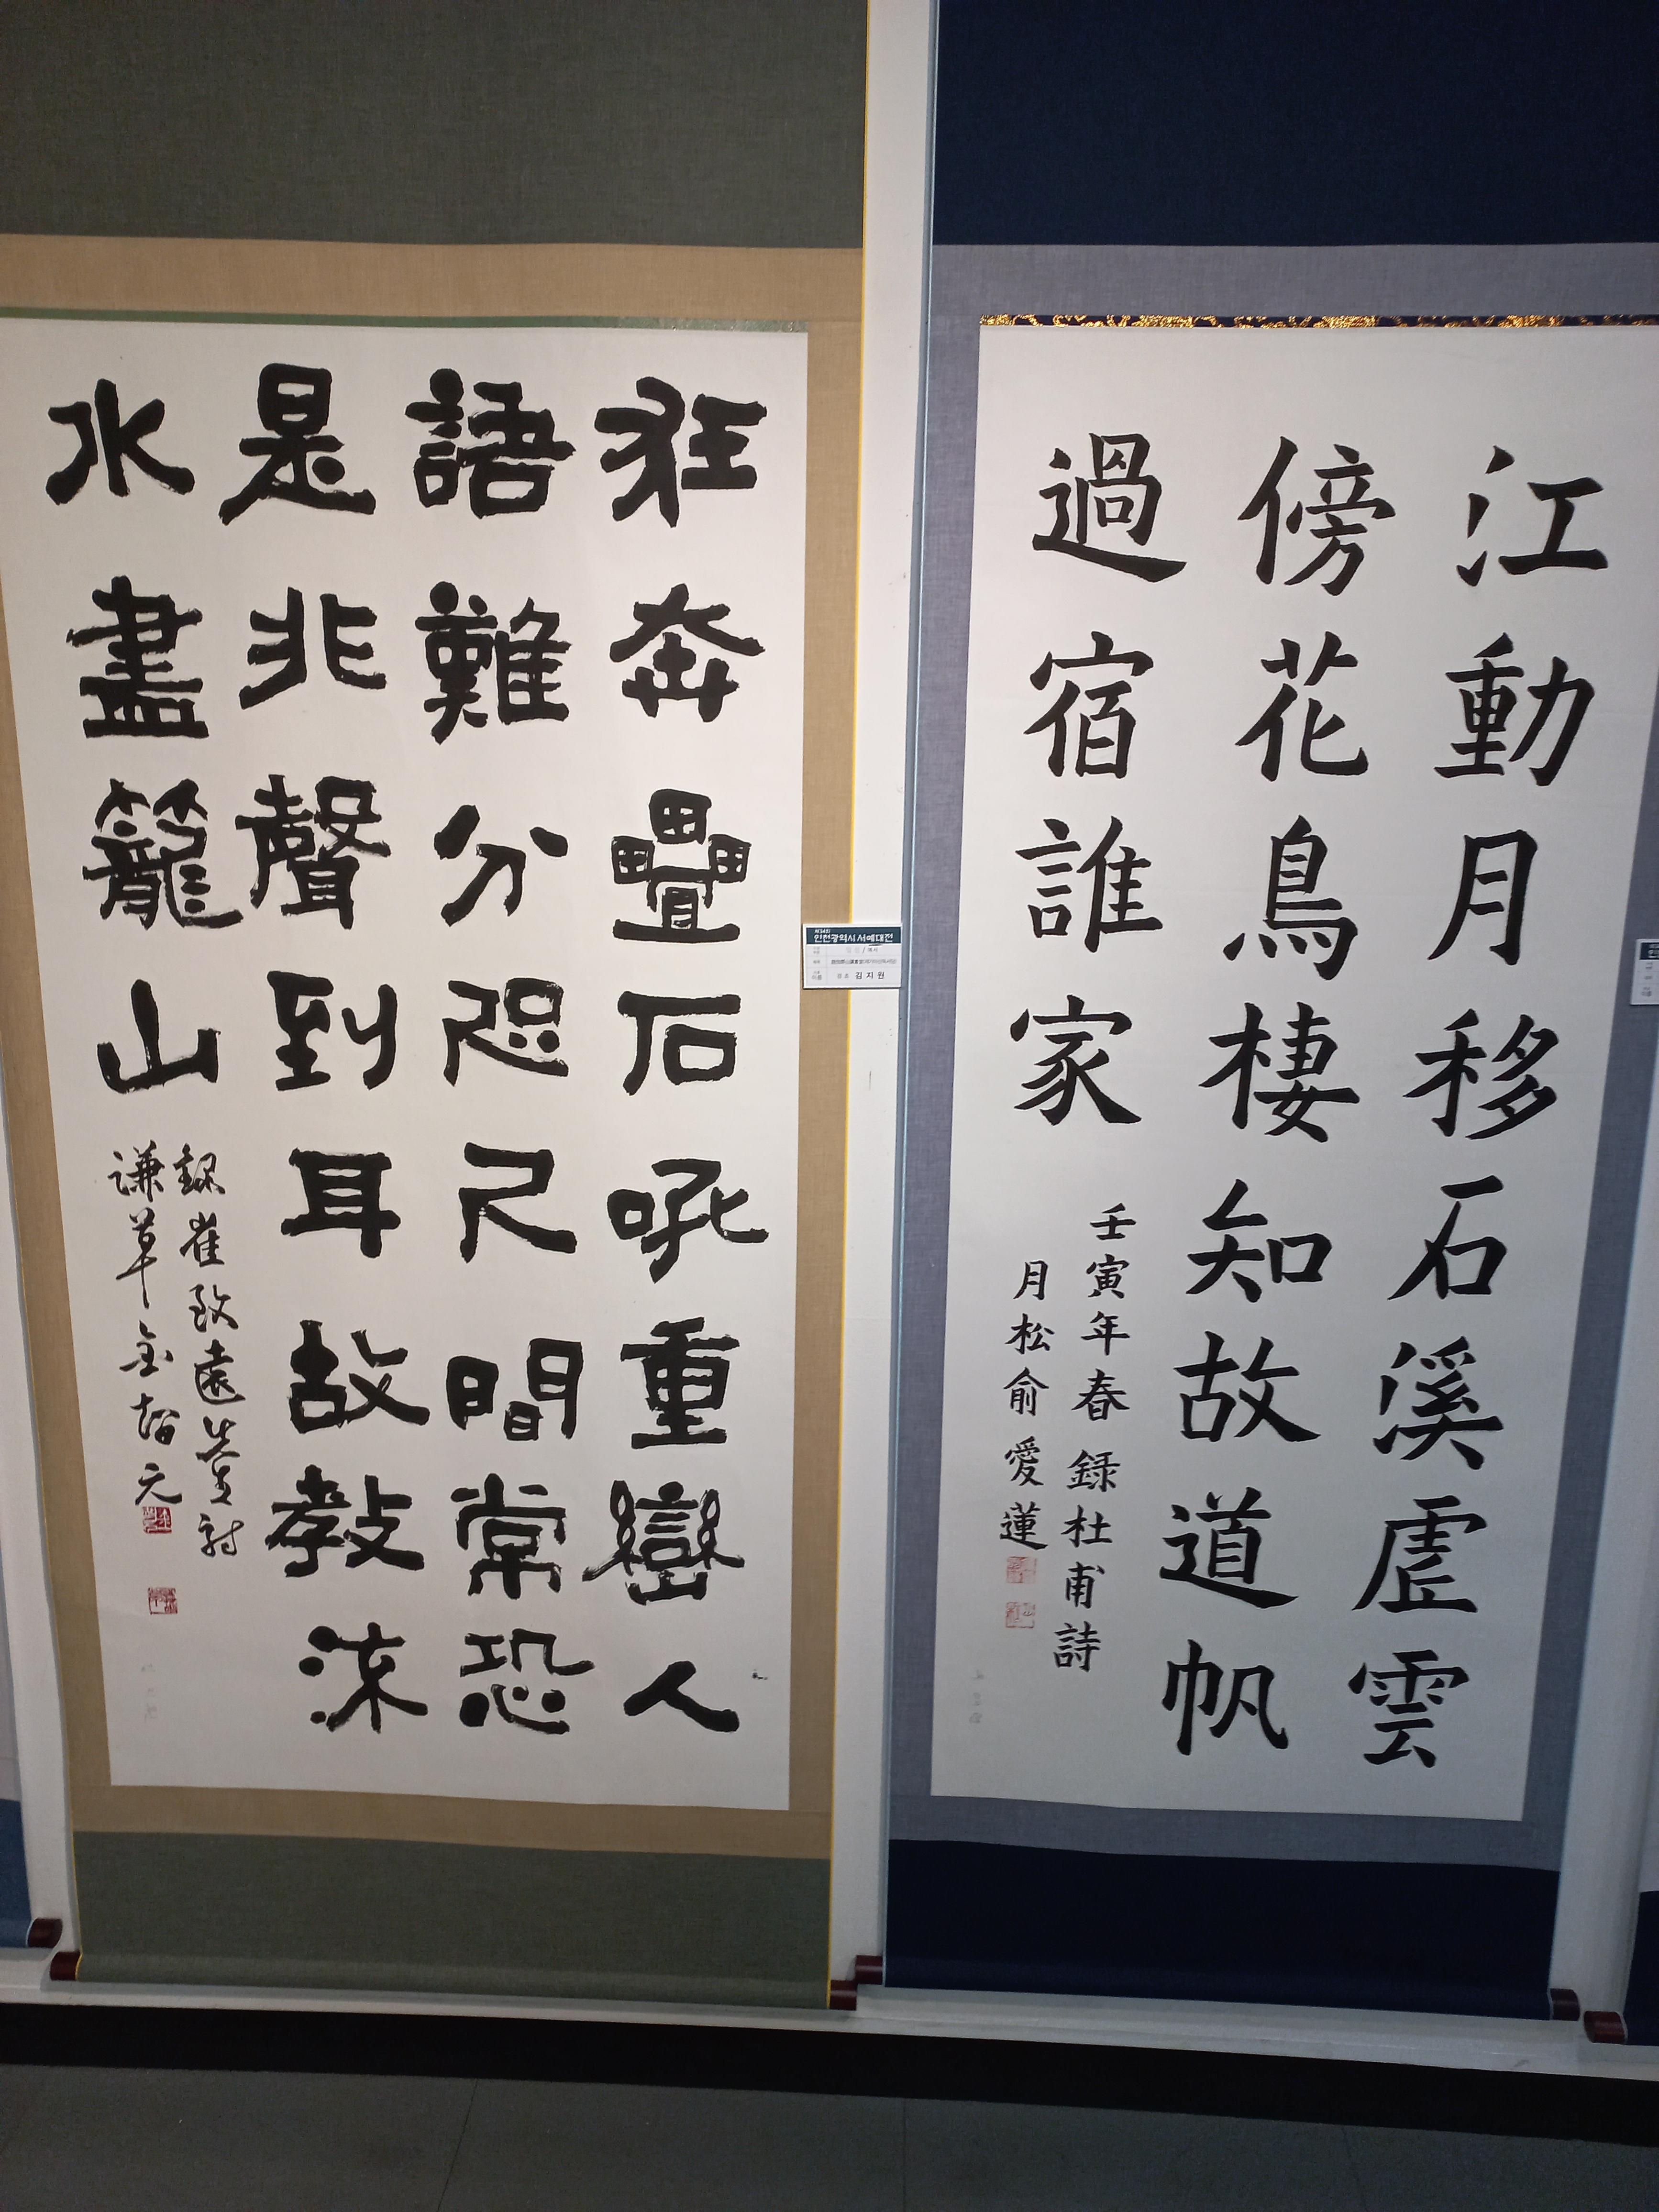 江動月移石溪虛雲
傍花鳥棲知故道帆
過宿誰家
壬寅年春録杜甫詩
月松俞愛蓮
狂奔疊石吼重巒人
語難分咫尺間常恐
是非聲到耳故敎流
水盡籠山
録崔致遠先生詩
謙草金智元
인천광역시 서예대전
김지원